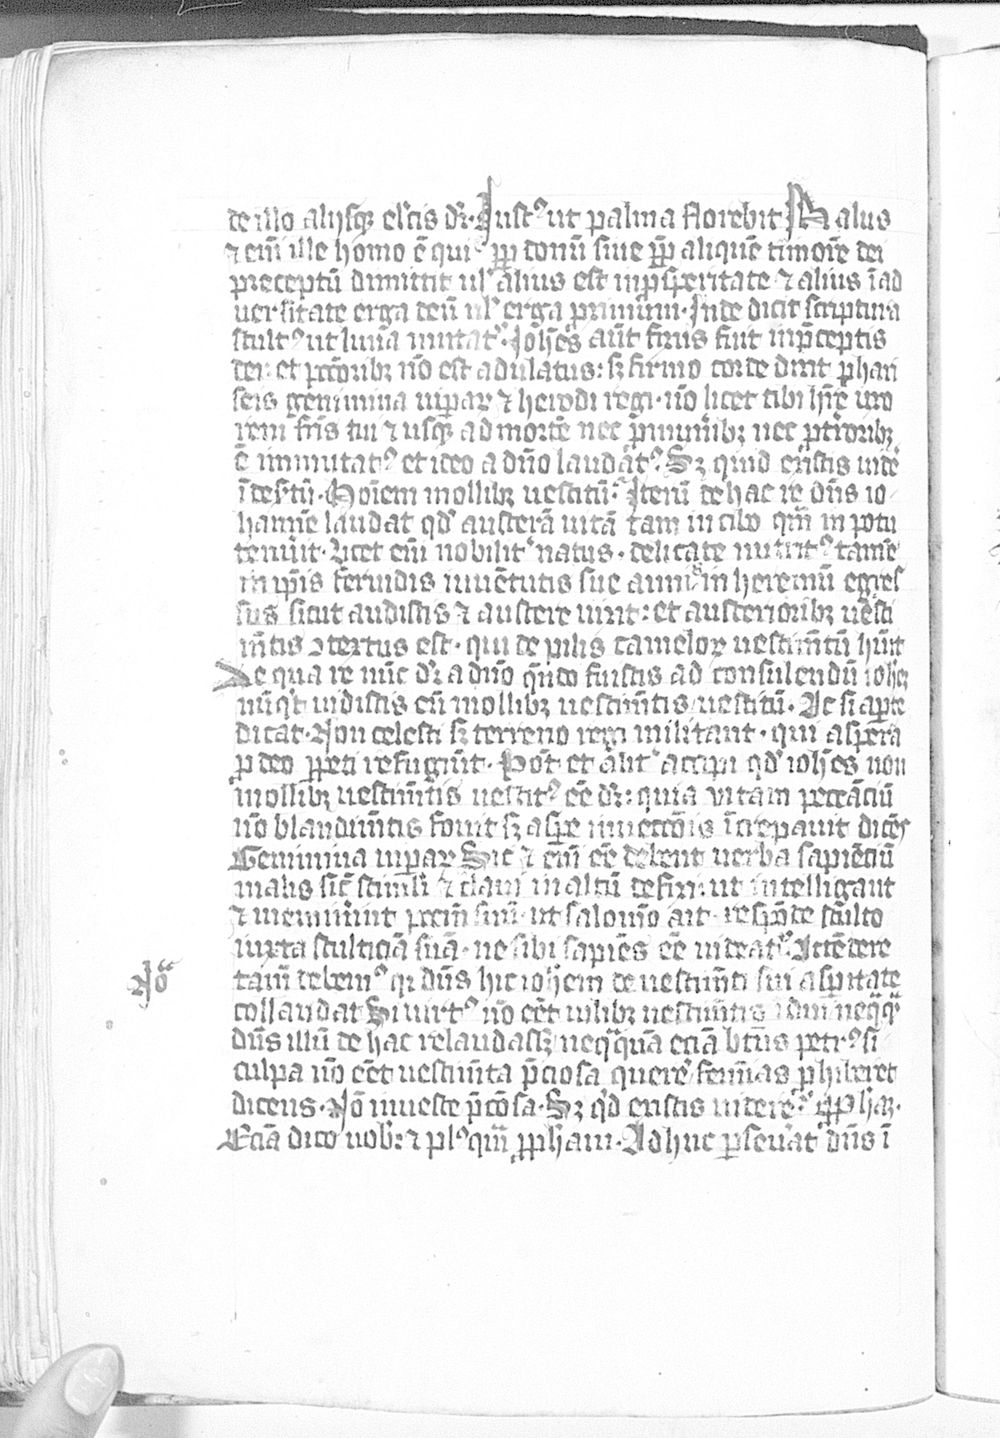 de illo alijsq̄ el'cis dr̄. Just⁹ ut palma florebit Malus
⁊ em̄ ille homo ē qui pp̄ donū siue pp̄ aliquē timorē dei
preceptū dimittit ul' alius est in p̄speritate ⁊ alius ī ad
uersitate erga deū ul' erga p̄rimū. Inde dicit scriptura
stult⁹ ut luna mutat'. Joh̄es aūt firus fuit in p̄ceptis
dei et p̄ctōribꝫ nō est adulatus: sꝫ firmo corde dixit phari
seis genimina uiꝑaꝝ ⁊ herodi regi. nō licet tibi hr̄e uxo
rem fr̄is tui ⁊ usq̄ ad mortē nec p̄ munīibꝫ nec
ē inmutat⁹ et ideo a dn̄o laudat⁹. Sꝫ quid exīstis uidē
ī des'tū. Hoīem mollibꝫ uestitū. Iterū de hac re dn̄s io
hannē laudat qd' austerā uitā tam in cibo qm̄ in potu
tenuit. Licet em̄ nobilit' natus. delicate nutrit⁹ tamē
in ip̄is feruidis iuuētutis sue annis in heremū egres
sus sicut audistis ⁊ austere uixit: et austerioribꝫ uesti
mētis ꝯtextus est. qui de pilis cameloꝝ uestimtū hūit
De qua re nūc dr̄ a dn̄o qn̄do fuistis ad consulendū ioh̄eꝫ
nūq't uidistis eū mollibꝫ uestimtis uestitū. Ac si aꝑte
dicat. Non celesti sꝫ terreno regi militant. qui asꝑa
ꝓ deo ꝑpeti refugiūt. Pōt et alit' accipi qd' ioh̄es non
mollibꝫ uestimtis uestit⁹ eē dr̄: quia vitam peccāciū
nō blandimtis fouit sꝫ asꝑe inuectōis īcrepauit dicēs
Genimina uiꝑaꝝ Sic ⁊ em̄ eē debent uerba sapiēciū
malis sic̄ stimli ⁊ claui in altū defixi. ut intelligant
⁊ meminīnt p̄cm̄ suū. ut salomō ait. respōde stulto
iuxta stulticiā suā. ne sibi sapiēs eē uideat'. Attēdere
Nō
tam̄ debem⁹ qr dn̄s hic ioh̄em de uestimti sui asꝑitate
collaudat Si uirt⁹ nō eēt uilibꝫ uestimtis īdui neq̄q̄
dn̄s illū de hac re laudassꝫ neq̄quā eciā bt̄us petr⁹ si
culpa nō eēt uestimta p̄ciosa querē feīas ꝓhiberet
dicens. Nō in ueste p̄cōsa. Sꝫ qd' exīstis uidere. ꝓph̄aꝫ.
Eciā dico uob: ⁊ pl⁹ qm̄ ꝓph̄am. Adhuc ꝑseuat dn̄s ī